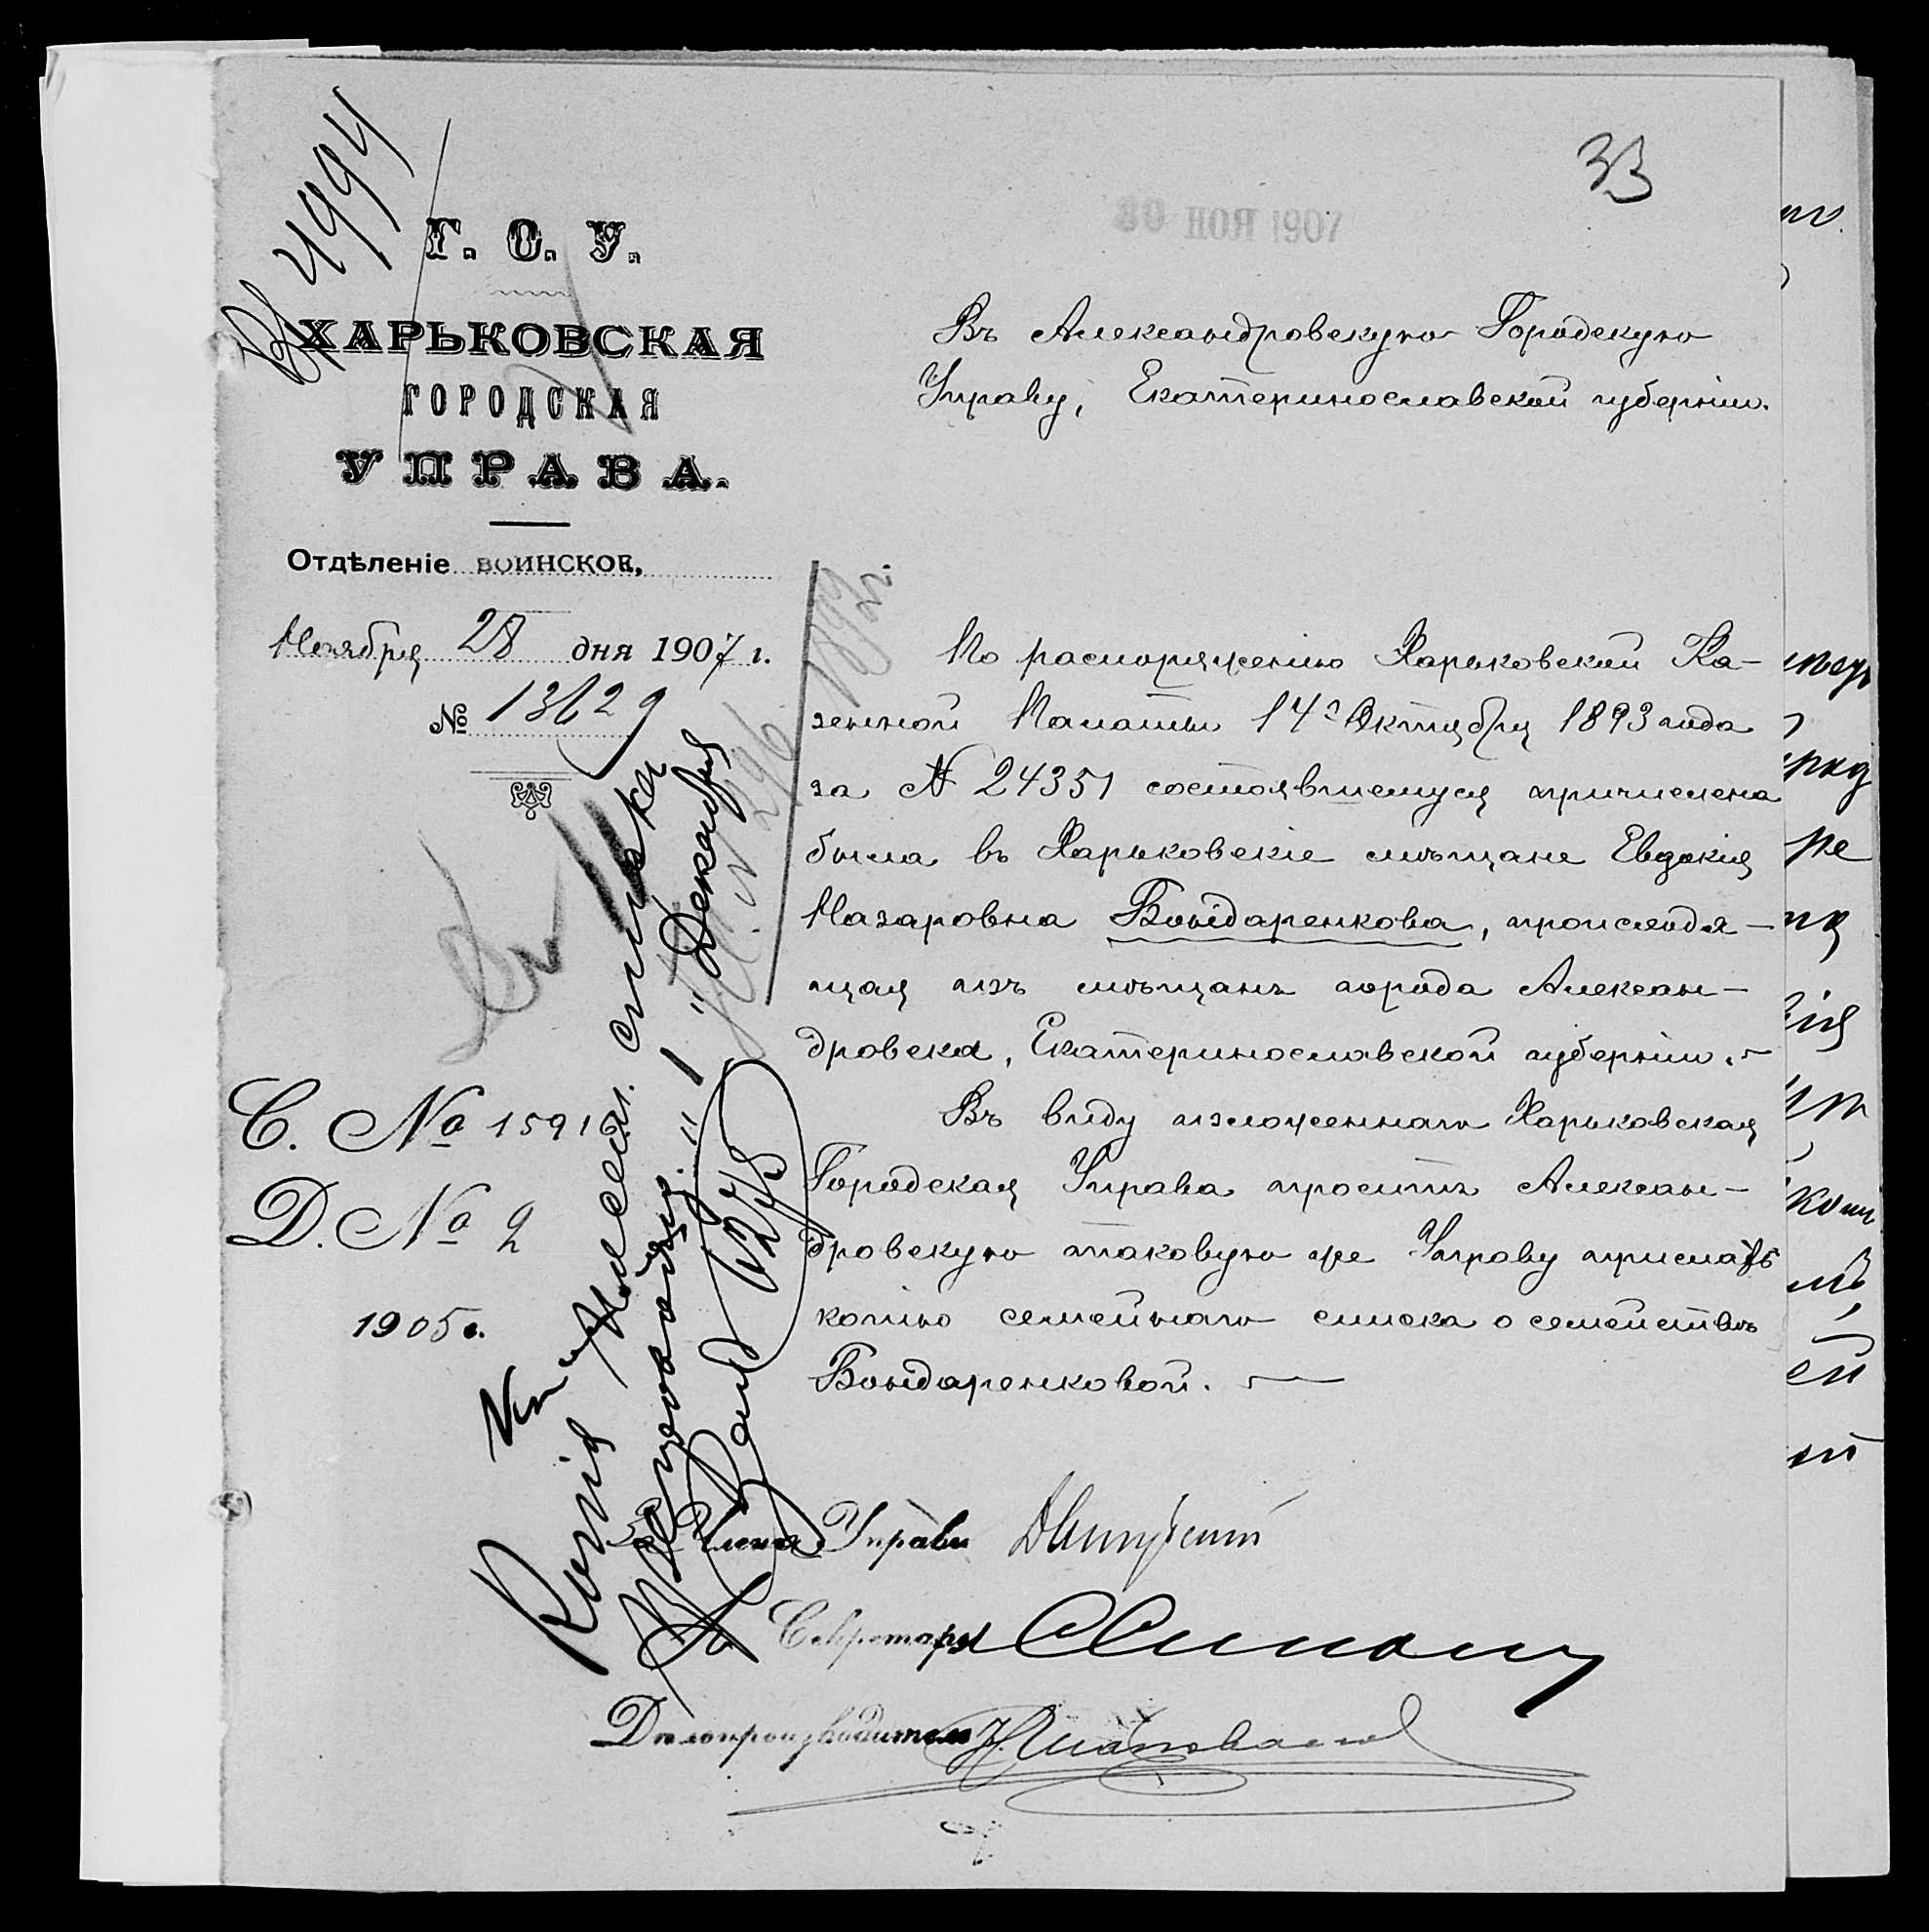 33
Вх 4994
30 НОЯ 1907
Г. О. У.
ХАРЬКОВСКАЯ
ГОРОДСКАЯ
УПРАВА.
Отдѣленіе ВОИНСКОЕ,
Ноября 28 дня 1907 г.
№ 13629
С. № 15916
Д. № 2
1905 г.
Въ Александровскую Городскую
Управу, Екатеринославской губерніи.
По распоряженію Харьковской Ка-
зенной Палаты 14го Октября 1893 года
за № 24351 состоявшемуся причислена
была въ Харьковскіе мѣщане Евдокія
Назаровна Бондаренкова, происходя-
щая изъ мѣщанъ города Алексан-
дровска, Екатеринославской губерніи.
Въ виду изложеннаго Харьковская
Городская Управа проситъ Алексан-
дровскую таковую же Управу прислать
копію семейнаго списка о семействѣ
Бондаренковой.
Копія посем. списка
"1" Декабря
1892 г.
За Члена Управы
Секретарь
Дѣлопроизводитель